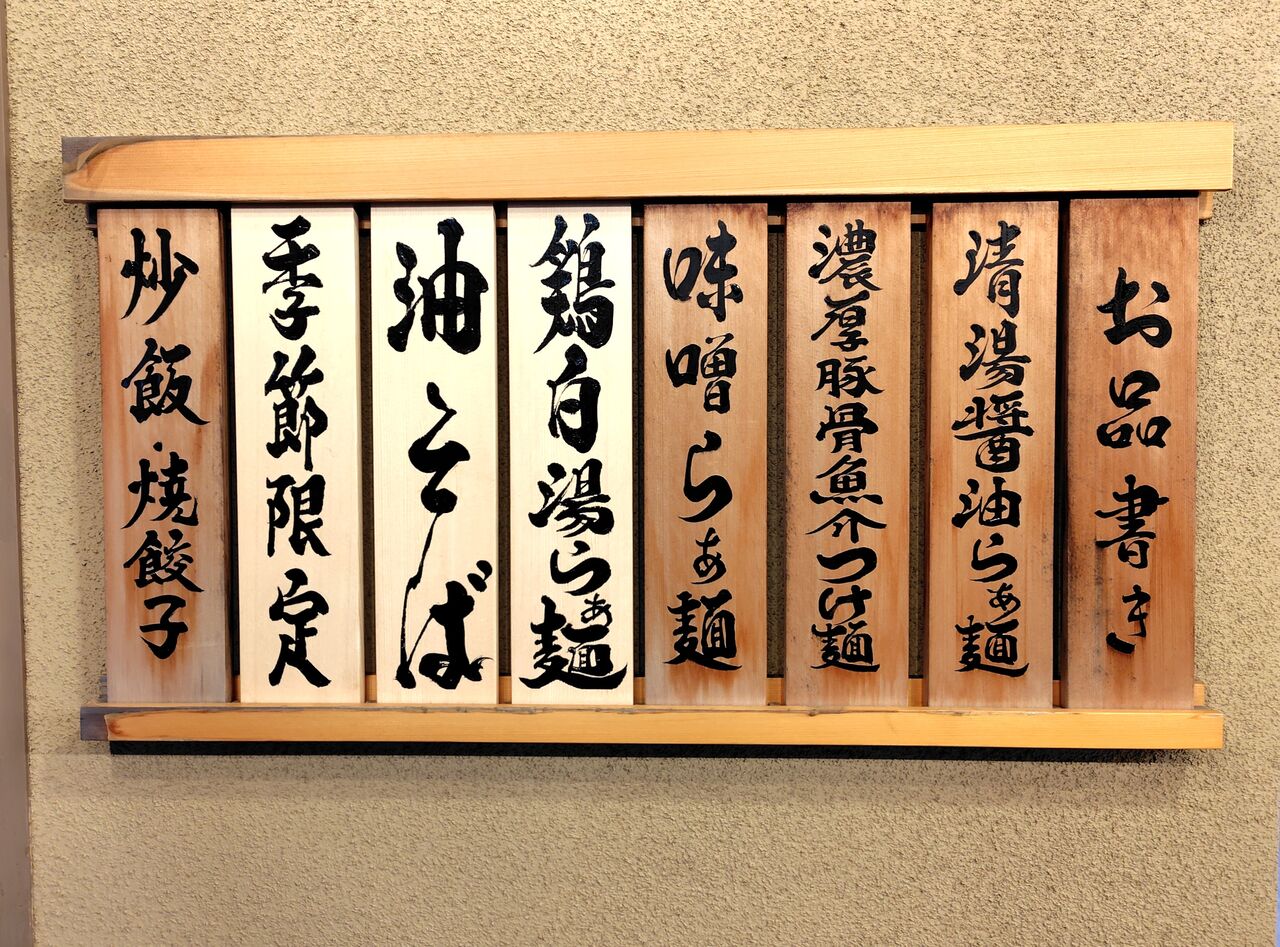 お品書き
清湯醤油らぁ麺
濃厚豚骨魚介つけ麺
味噌らぁ麺
鶏白湯らぁ麺
油そば
季節限定
炒飯・焼餃子